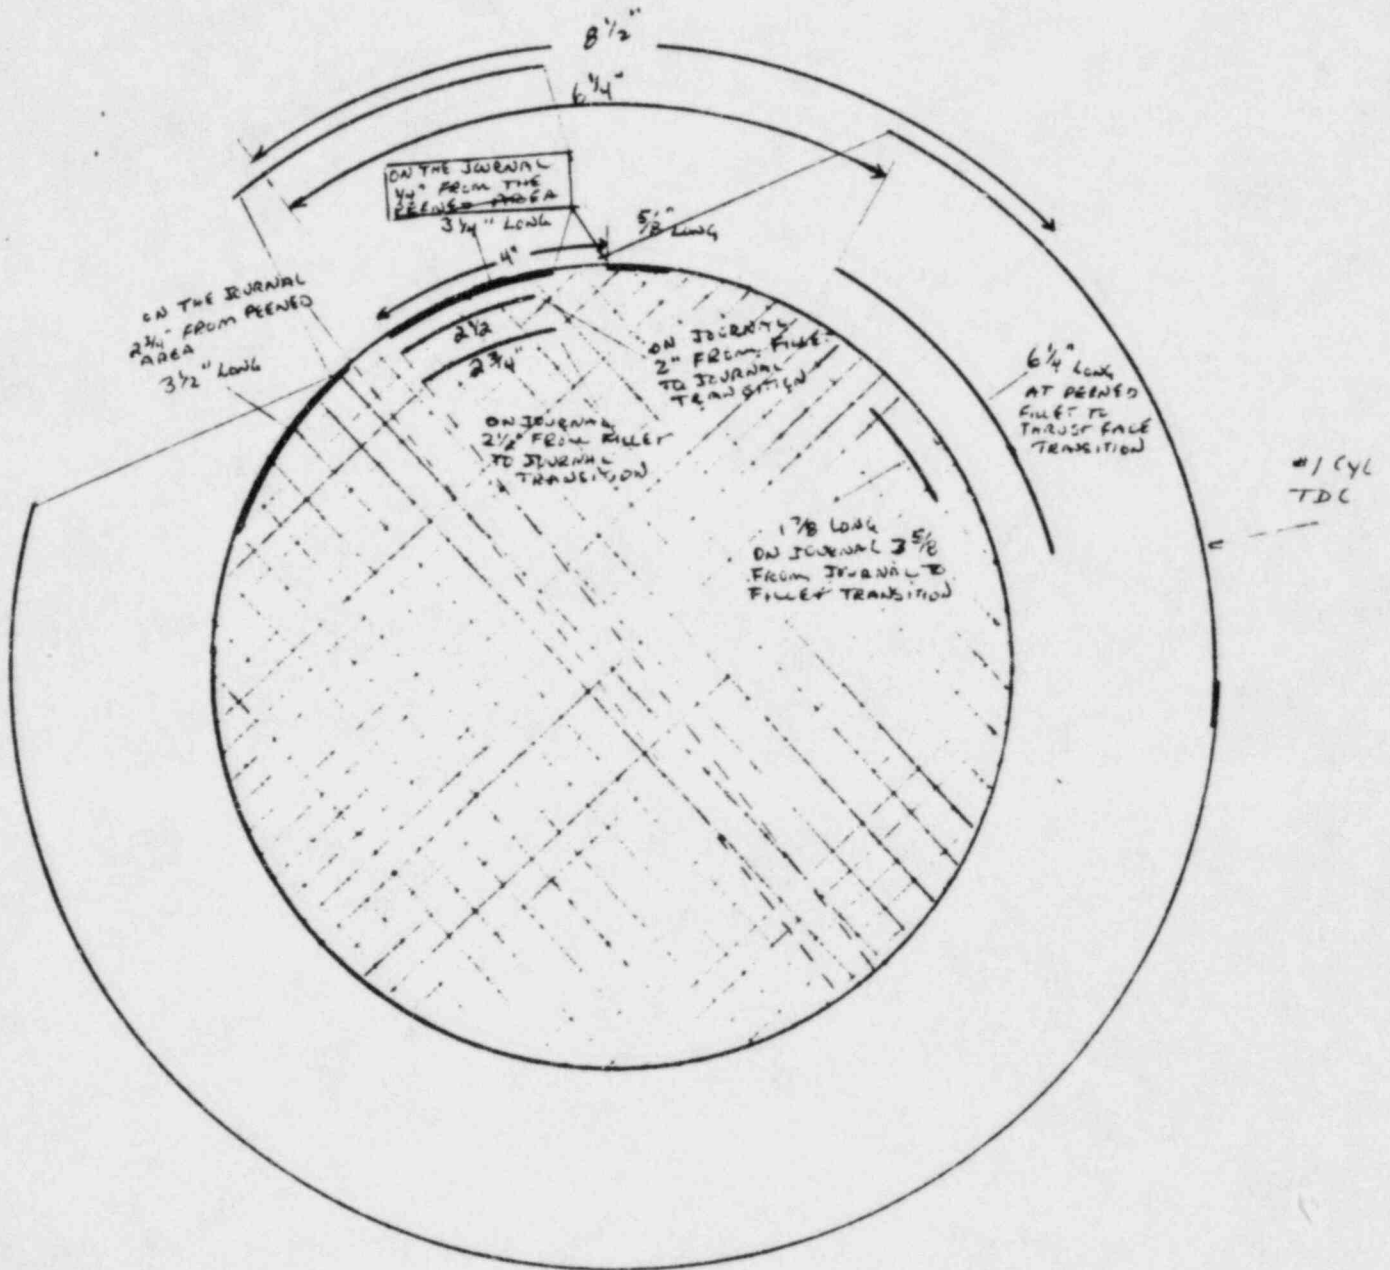 8 1/2"
6 1/4"
ON THE JOURNAL
1/4" FROM THE
PEENED AREA
3 1/4" LONG
5/8" LONG
4"
ON THE JOURNAL
2 3/4" FROM PEENED
AREA
3 1/2" LONG
2 1/2
2 3/4"
ON JOURNAL
2" FROM FILLET
TO JOURNAL
TRANSITION
ON JOURNAL
2 1/2" FROM FILLET
TO JOURNAL
TRANSITION
6 1/4" LONG
AT PEENED
FILLET TO
THRUST FACE
TRANSITION
#1 CYL
TDC
1 7/8 LONG
ON JOURNAL 3 5/8
FROM JOURNAL TO
FILLET TRANSITION